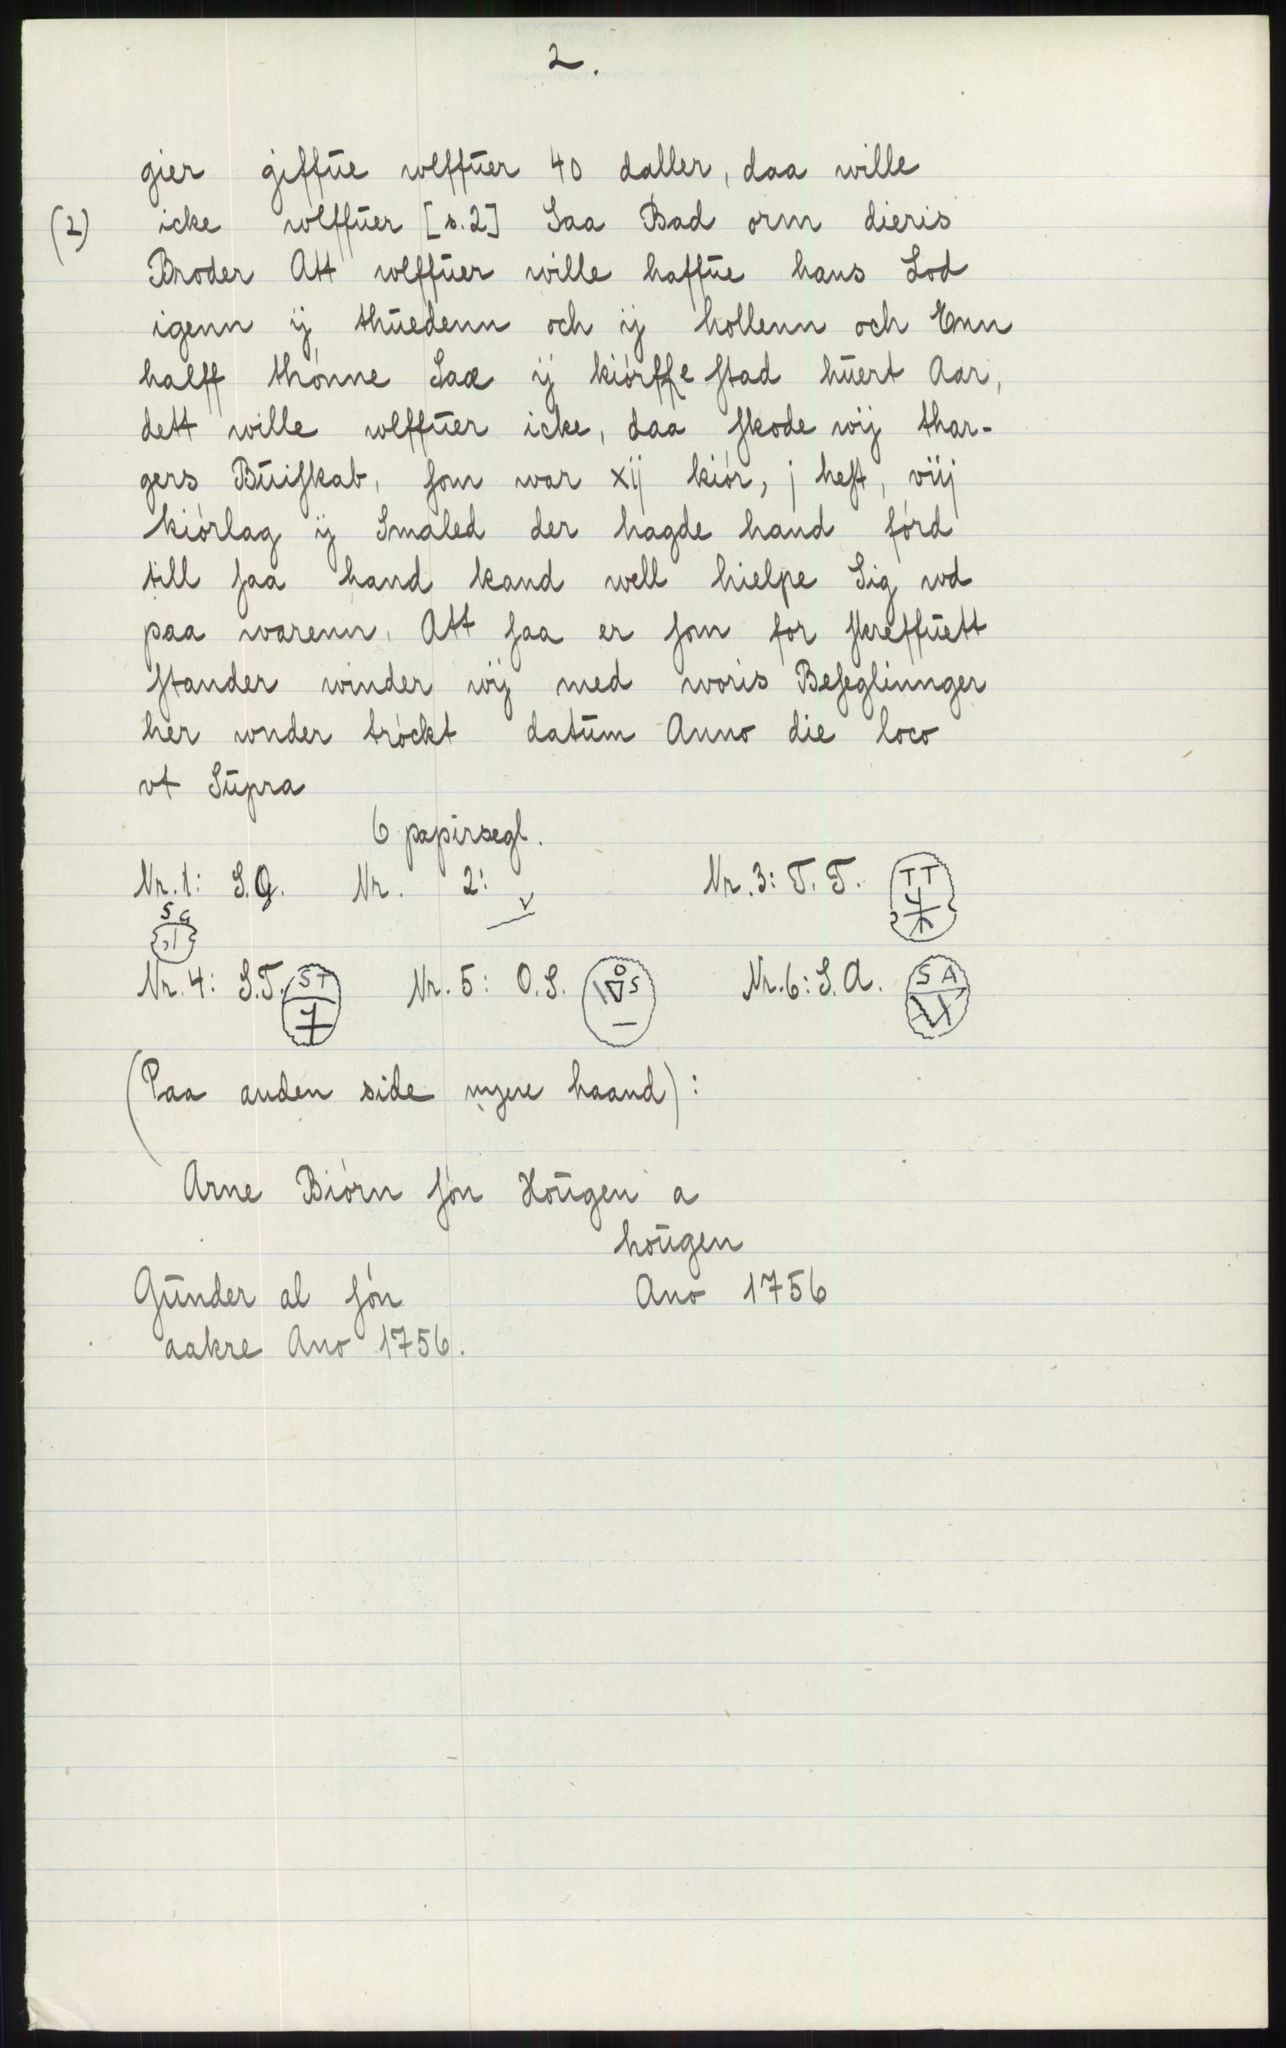 2.
gier giffue wlffuer 40 daller, daa wille
(2) icke wlffuer [s.2] Saa Bad orm dieris
Broder Att wlffuer wille haffue hans Lod
igenn ij thuedenn och ij hollenn och Enn
halff thónne Sæ ij kiórffe stad huert Aar,
dett wille wlffuer icke, daa skode wij thar-
gers Buiskab, som war xij kiór, j hest, viij
kiórlag ij Smaled der hagde hand fórd
till saa hand kand well hielpe Sig wd
paa warenn, Att saa er som for skreffuett
stander winder wij med woris Beseglinnger
her wnder tróckt datum Anno die loco
vt Supra
6 papirsegl.
Nr. 1: S.G. Nr. 2: Nr. 3: T. T. TT
S G
Nr. 4: S.T. ST Nr. 5: O.S. O S Nr. 6: S. A. S A
(Paa anden side nyere haand):
Arne Biórn són Hougen a
hougen
Gunder al són Ano 1756
aakre Ano 1756.